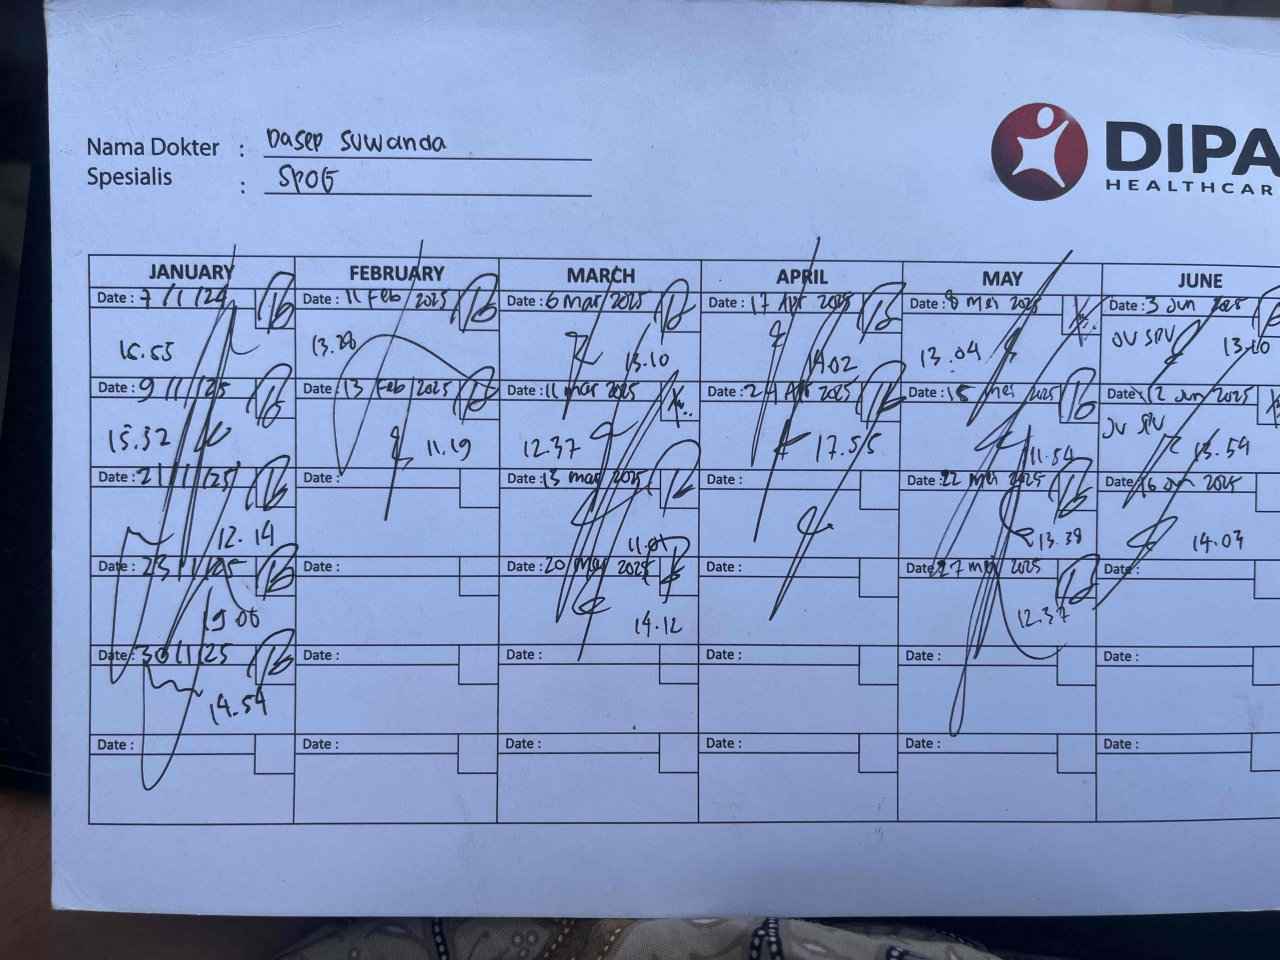 Nama Dokter : Dasep Suwanda
Spesialis : SPOG
DIPA
HEALTHCAR
JANUARY FEBRUARY MARCH APRIL MAY JUNE
Date : 7/1/24 Date : 11 Feb 2025 Date : 6 mar 2025 Date : 17 Apr 2025 Date : 8 mei 2025 Date : 3 Jun 2025
JV SPV
16.55 13.28 13.10 14.02 13.04 13.10
Date : 9/1/25 Date : 13 Feb 2025 Date : 11 mar 2025 Date : 24 Apr 2025 Date : 15 mei 2025 Date : 12 Jun 2025
JV SPV
15.32 11.19 12.37 17.55 11.54 13.59
Date : 21/1/25 Date : Date : 13 mar 2025 Date : Date : 22 mei 2025 Date : 16 Jun 2025
12.14 11.01 13.38 14.03
Date : 23/1/25 Date : Date : 20 Mar 2025 Date : Date : 27 mei 2025 Date :
19.06 14.12 12.37
Date : 30/1/25 Date : Date : Date : Date : Date :
14.54
Date : Date : Date : Date : Date : Date :